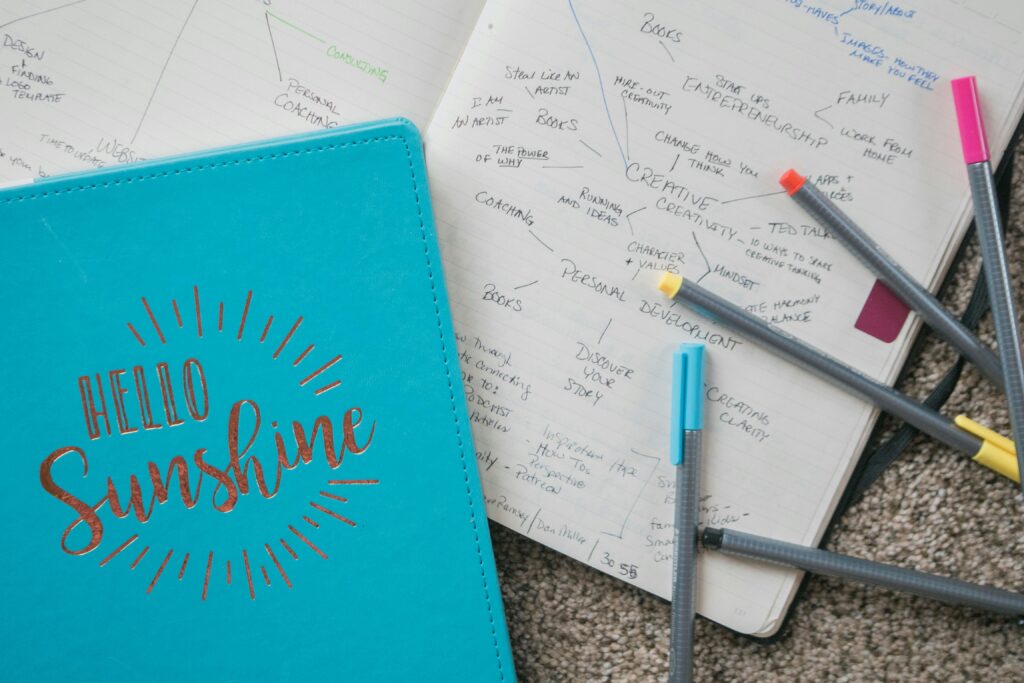 DESIGN
+
FINDING
LOGO
TEMPLATE
TIME TO UPDATE
WEBSITE
CONSULTING
PERSONAL
COACHING
HELLO
Sunshine
STORY/ABOUT
IMAGES - HOW THEY
MAKE YOU FEEL
BOOKS
STEAL LIKE AN
ARTIST
I AM
AN ARTIST
BOOKS
HIRE-OUT
CREATIVITY
START UPS
ENTREPRENEURSHIP
FAMILY
WORK FROM
HOME
THE POWER
OF WHY
CHANGE HOW YOU
THINK
CREATIVE
CREATIVITY
APPS +
TED TALKS
10 WAYS TO SPARK
CREATIVE THINKING
MINDSET
HARMONY
BALANCE
RUNNING
AND IDEAS
CHARACTER
+ VALUES
COACHING
PERSONAL DEVELOPMENT
BOOKS
DISCOVER
YOUR
STORY
CREATING
CLARITY
Through
Connecting
TO:
PODCAST
Articles
Inspiration
How Tos
Perspective
Patreon
Ramsey/Dan Miller/
30 55